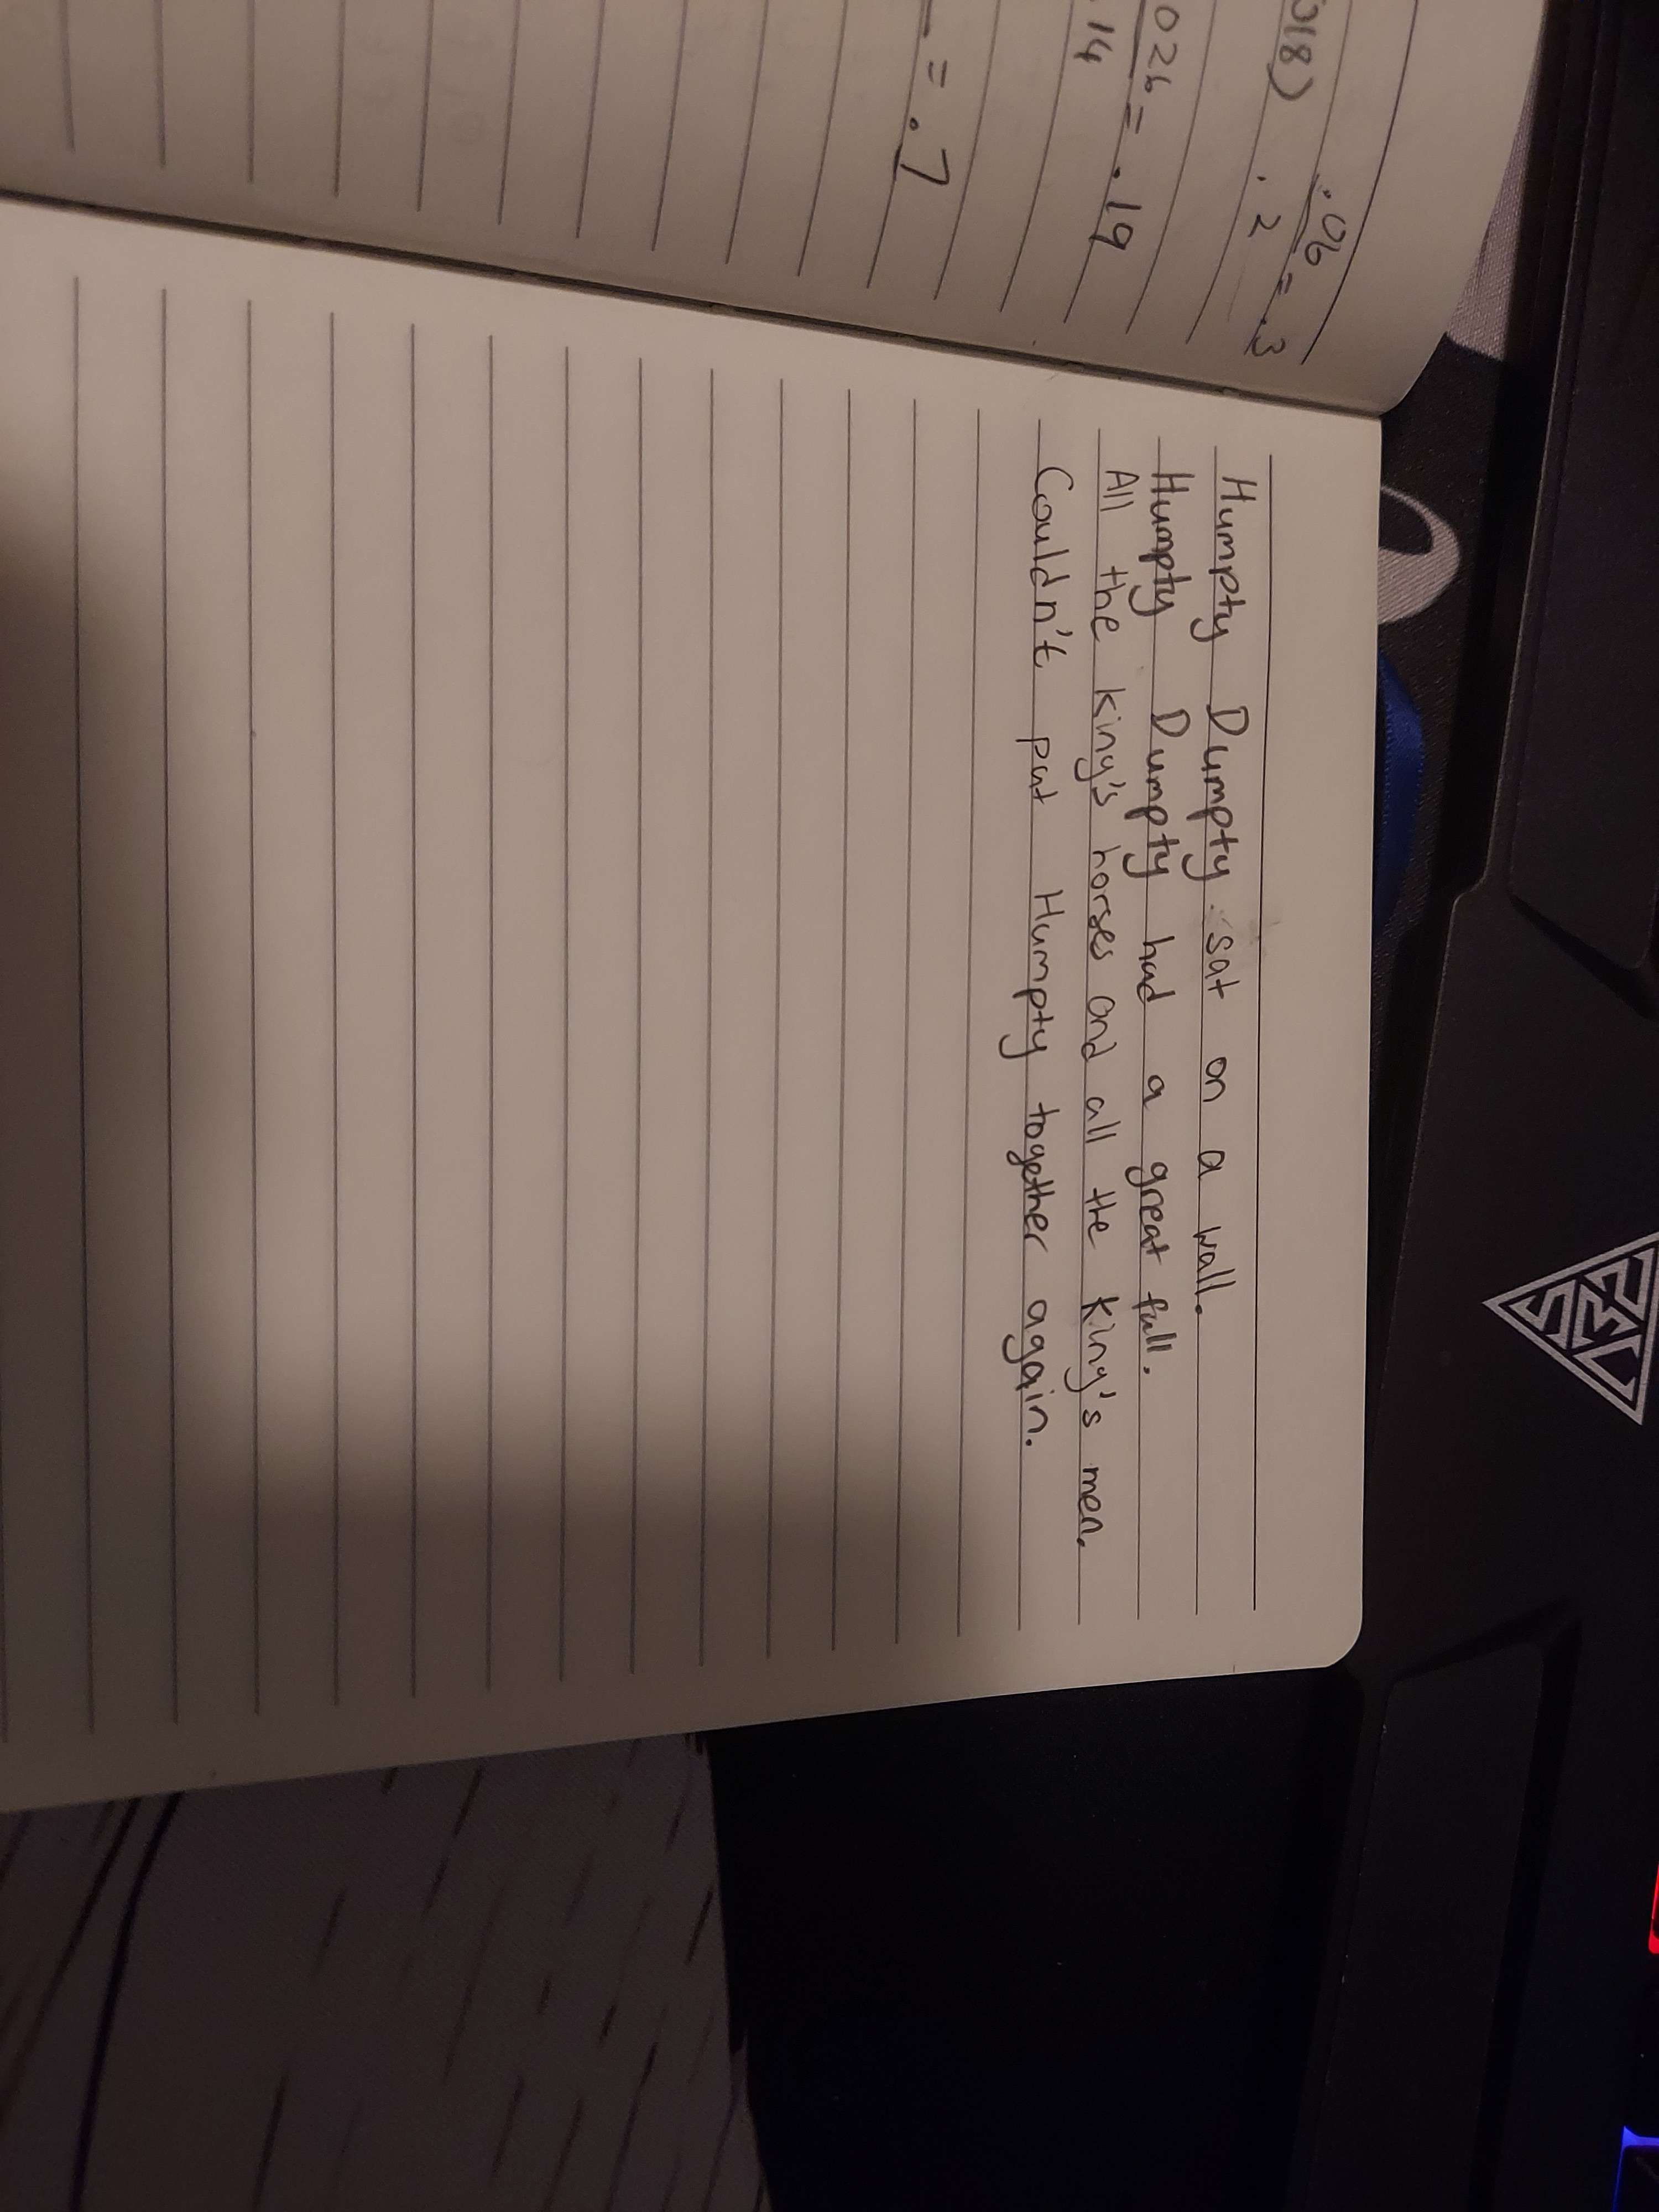 .06
018) .2 = .3
026 = .19
.14
= .7
Humpty Dumpty sat on a wall.
Humpty Dumpty had a great fall.
All the king's horses and all the king's men.
Couldn't put Humpty together again.